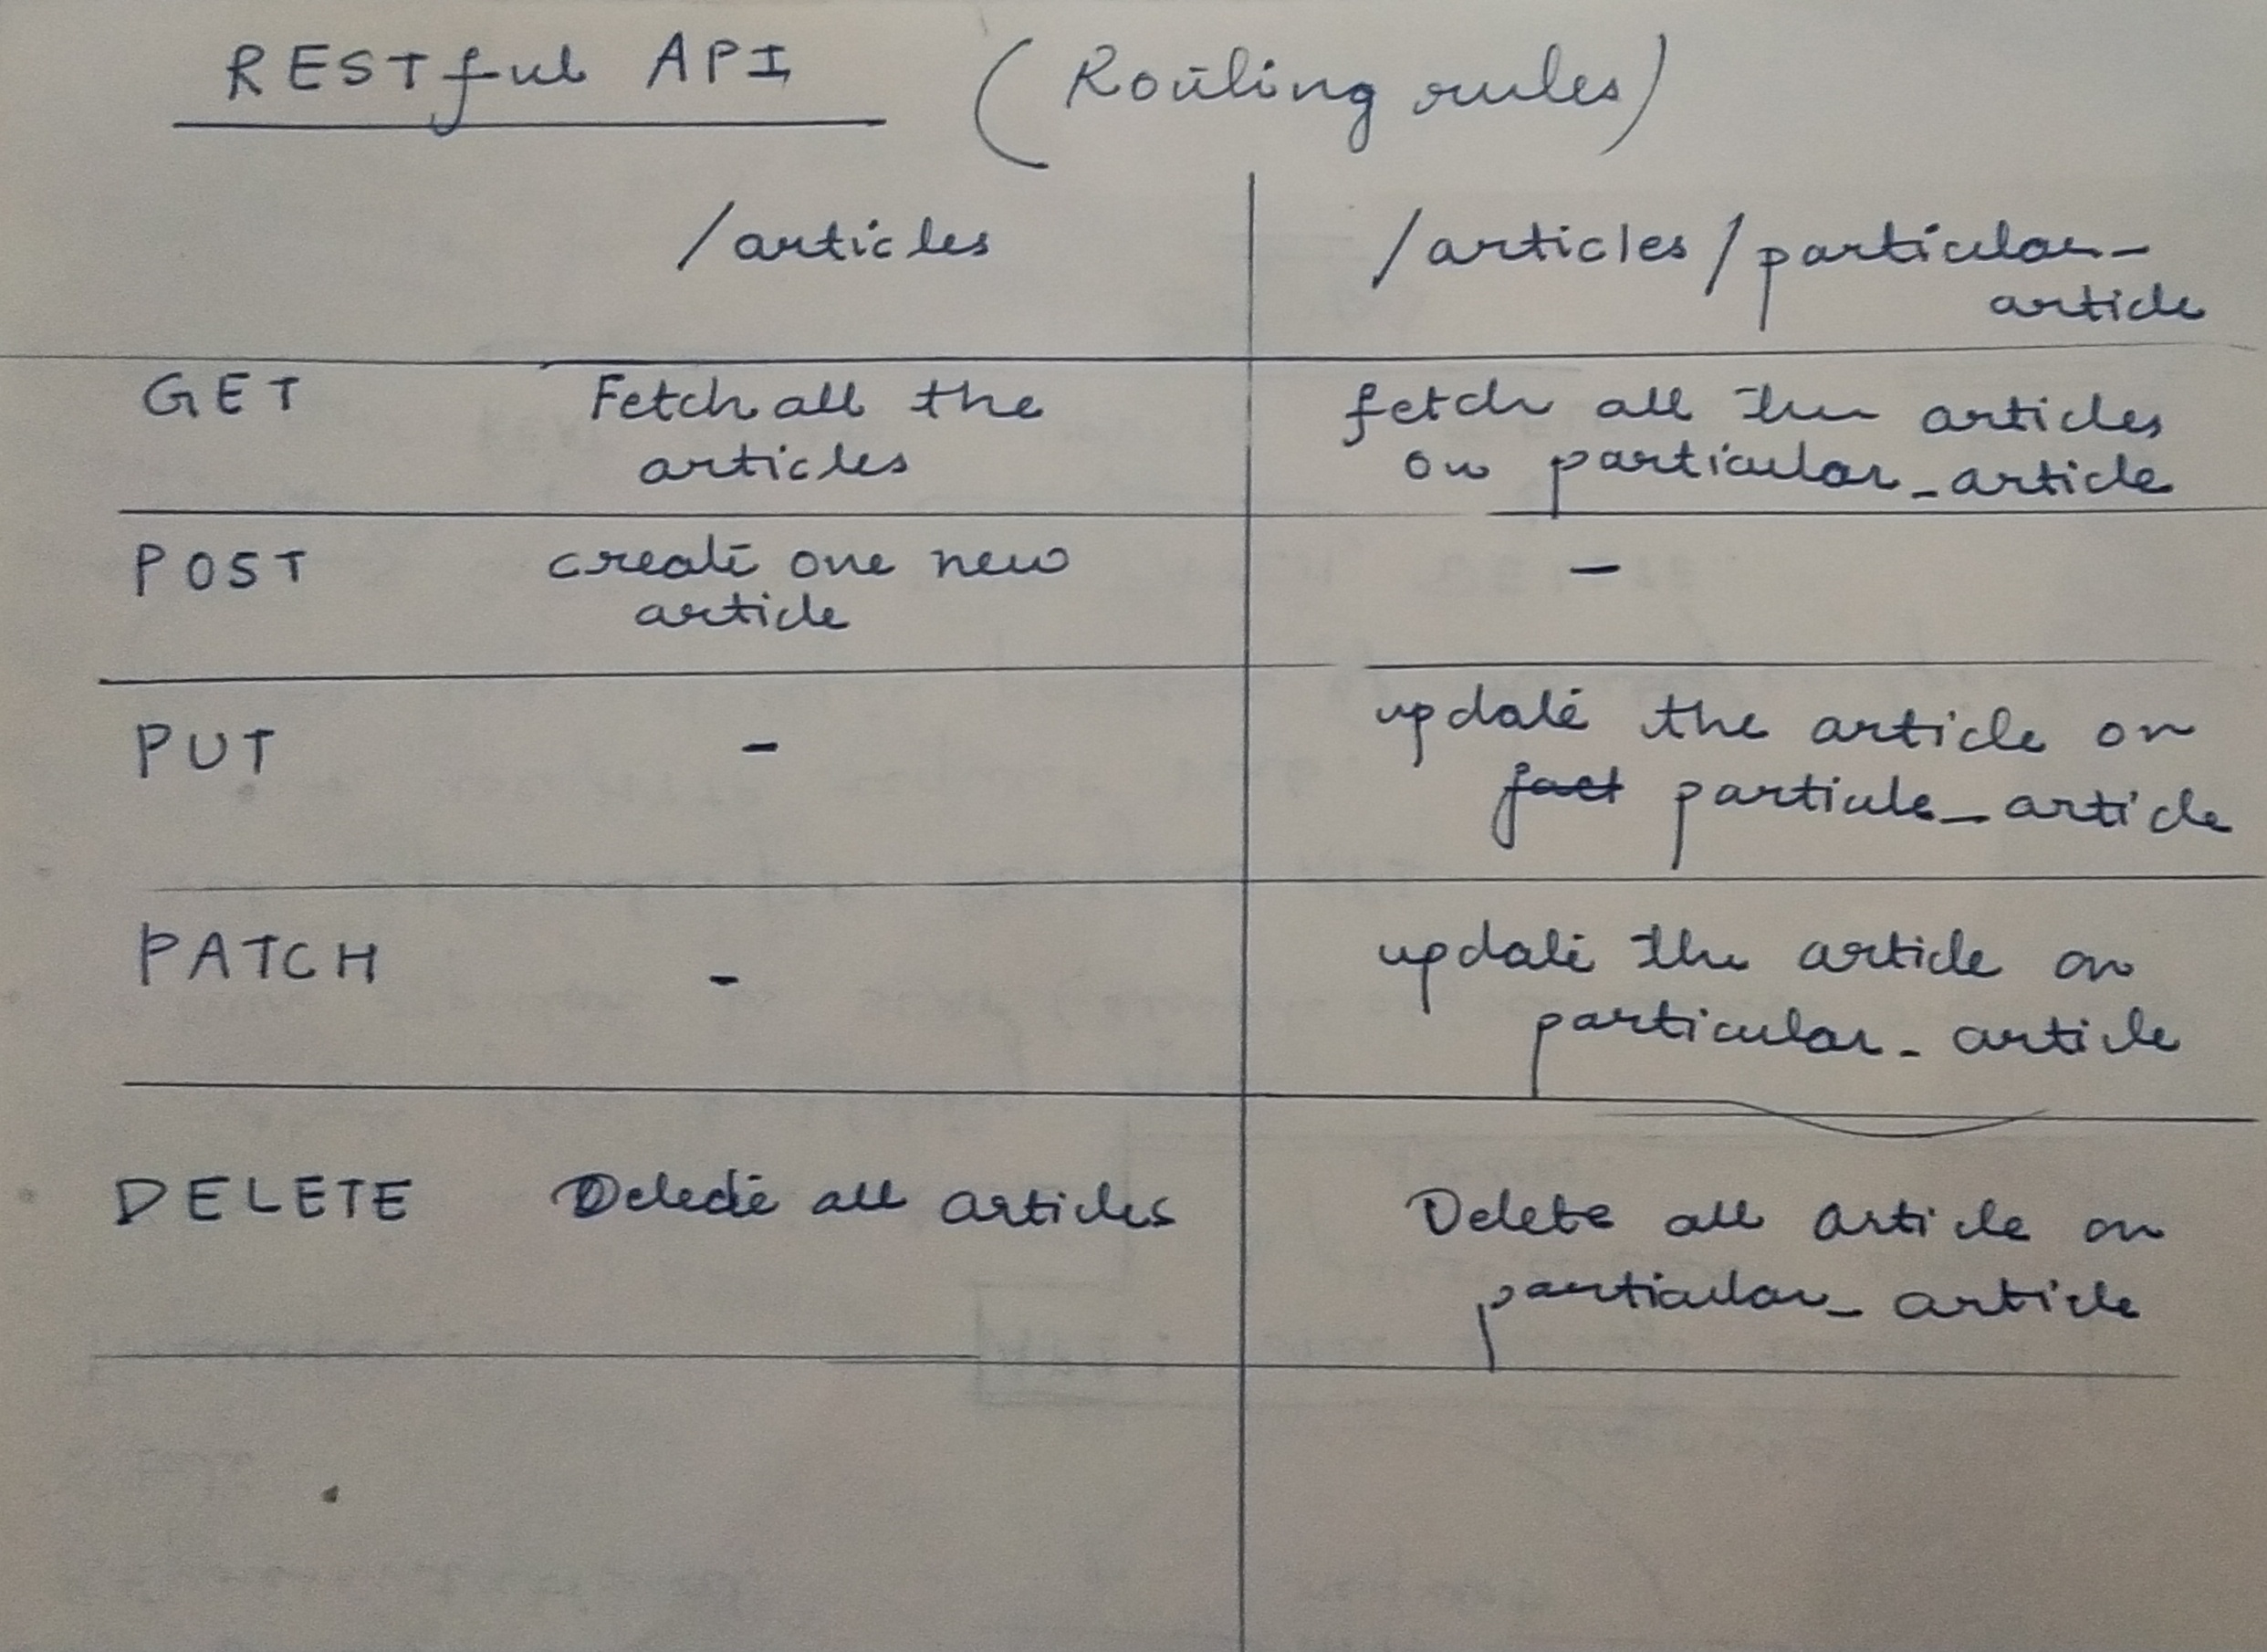 RESTful API (Routing rules)
/articles /articles/particular_
article
GET Fetch all the fetch all the articles
articles on particular_article
POST create one new -
article
PUT - update the article on
particule_article
PATCH - update the article on
particular_article
DELETE Delete all articles Delete all article on
particular_article